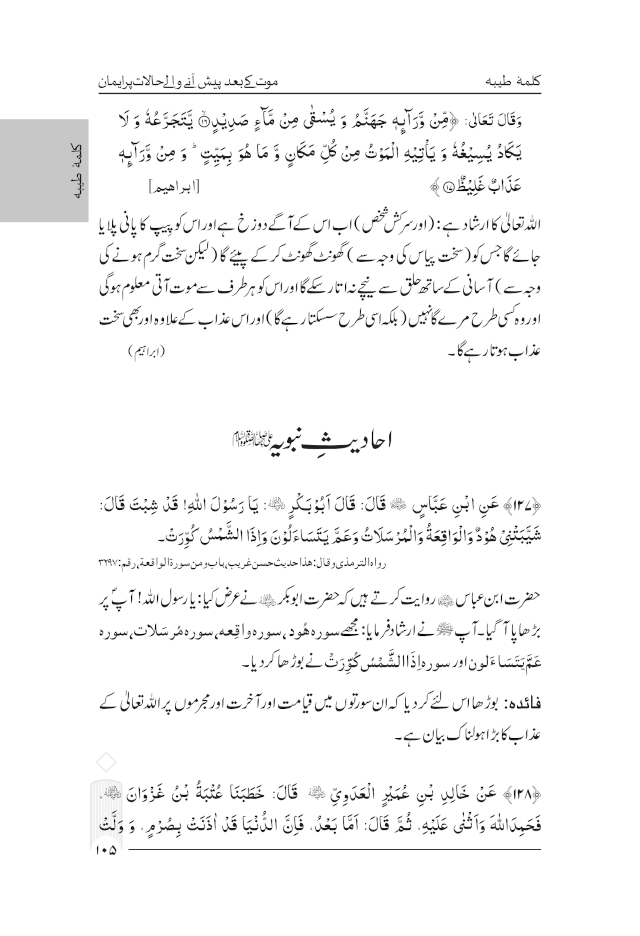 کلمۂ طیبه
موت کے بعد پیش آنے والے حالات پر ایمان
کلمۂ طیبه
وَقَالَ تَعَالٰی: ﴿مِّنْ وَّرَآئِهٖ جَهَنَّمُ وَ يُسْقٰى مِنْ مَّآءٍ صَدِيْدٍۙ۝۱۶ يَّتَجَرَّعُهٗ وَ لَا
يَكَادُ يُسِيْغُهٗ وَ يَاْتِيْهِ الْمَوْتُ مِنْ كُلِّ مَكَانٍ وَّ مَا هُوَ بِمَيِّتٍ ؕ وَ مِنْ وَّرَآئِهٖ
عَذَابٌ غَلِيْظٌ۝۱۷﴾ [ابراهیم]
اللہ تعالیٰ کا ارشاد ہے: (اور سرکش شخص) اب اس کے آگے دوزخ ہے اور اس کو پیپ کا پانی پلایا
جائے گا جس کو (سخت پیاس کی وجہ سے) گھونٹ گھونٹ کر کے پیئے گا (لیکن سخت گرم ہونے کی
وجہ سے) آسانی کے ساتھ حلق سے نیچے نہ اتار سکے گا اور اس کو ہر طرف سے موت آتی معلوم ہوگی
اور وہ کسی طرح مرے گا نہیں (بلکہ اسی طرح سسکتا رہے گا) اور اس عذاب کے علاوہ اور بھی سخت
عذاب ہوتا رہے گا۔ (ابراہیم)
احادیثِ نبویہ ﷺ
﴿۱۲۷﴾ عَنِ ابْنِ عَبَّاسٍ رضی اللہ عنہ قَالَ: قَالَ اَبُوْبَكْرٍ رضی اللہ عنہ: يَا رَسُوْلَ اللهِ! قَدْ شِبْتَ قَالَ:
شَيَّبَتْنِىْ هُوْدٌ وَالْوَاقِعَةُ وَالْمُرْسَلَاتُ وَعَمَّ يَتَسَاءَلُوْنَ وَاِذَا الشَّمْسُ كُوِّرَتْ۔
رواه الترمذی وقال: هذا حدیث حسن غریب، باب ومن سورة الواقعة، رقم: ۳۲۹۷
حضرت ابن عباس رضی اللہ عنہ روایت کرتے ہیں کہ حضرت ابوبکر رضی اللہ عنہ نے عرض کیا: یا رسول اللہ! آپ پر
بڑھاپا آ گیا۔ آپ ﷺ نے ارشاد فرمایا: مجھے سورہ ھُود، سورہ واقِعه، سورہ مُرسَلات، سورہ
عَمَّ يَتَسَاءَلون اور سورہ اِذَا الشَّمْسُ كُوِّرَتْ نے بوڑھا کر دیا۔
فائدہ: بوڑھا اس لئے کر دیا کہ ان سورتوں میں قیامت اور آخرت اور مجرموں پر اللہ تعالیٰ کے
عذاب کا بڑا ہولناک بیان ہے۔
﴿۱۲۸﴾ عَنْ خَالِدِ بْنِ عُمَيْرٍ الْعَدَوِيِّ رضی اللہ عنہ قَالَ: خَطَبَنَا عُتْبَةُ بْنُ غَزْوَانَ رضی اللہ عنہ،
فَحَمِدَ اللّٰهَ وَاَثْنٰى عَلَيْهِ، ثُمَّ قَالَ: اَمَّا بَعْدُ، فَاِنَّ الدُّنْيَا قَدْ اٰذَنَتْ بِصُرْمٍ، وَ وَلَّتْ
۱۰۵